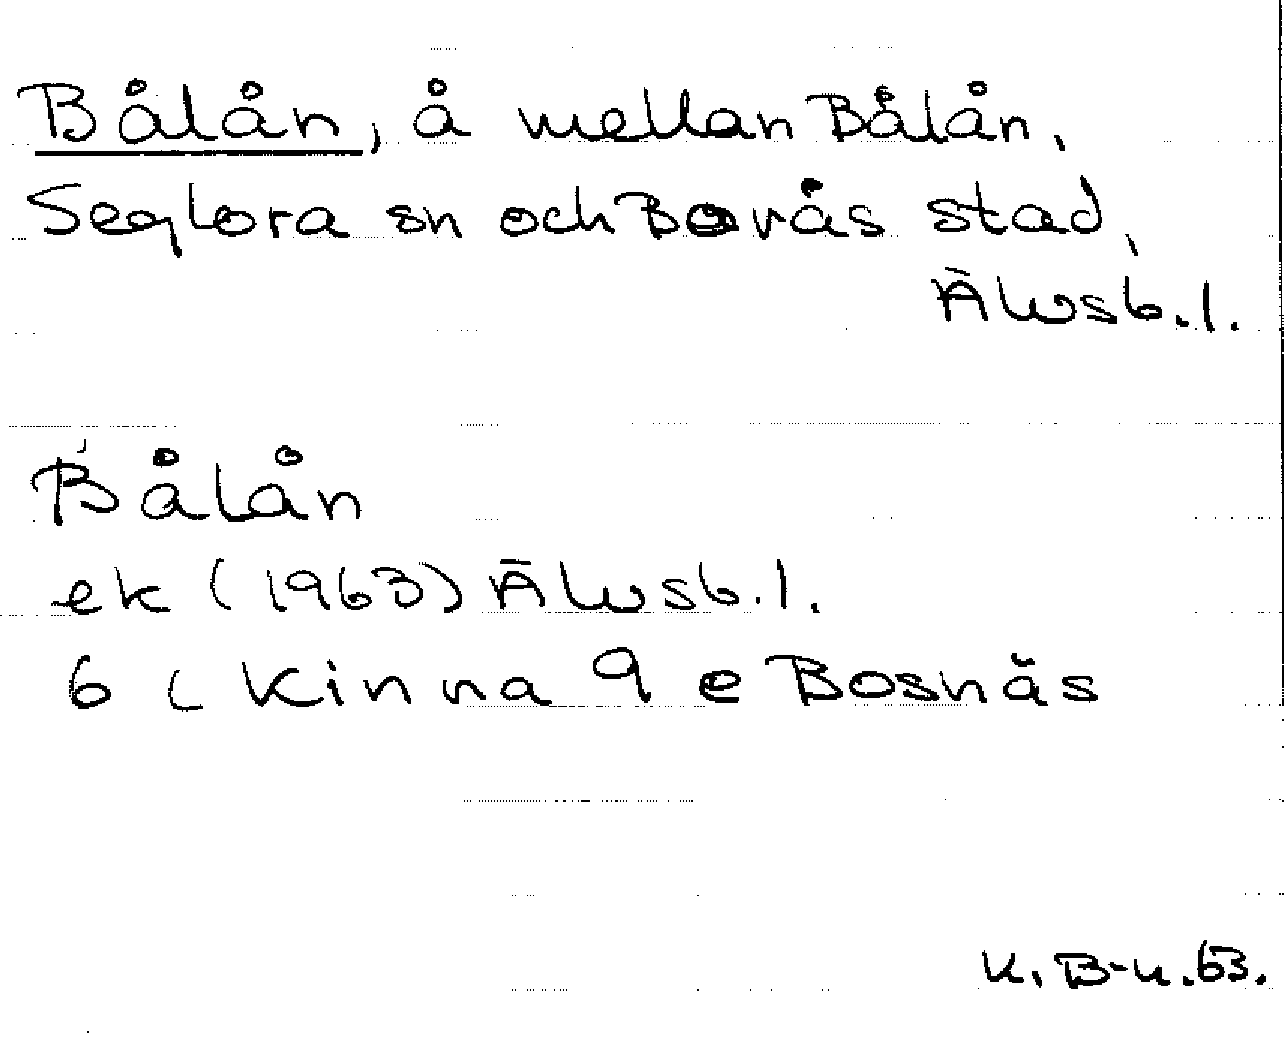 Bålån, å mellan Bålån,
Seglora sn och Borås stad,
Älvsb. l.
Bålån
ek (1963) Älvsb. l.
6 c Kinna 9 e Bosnäs
K. B-K. 63.